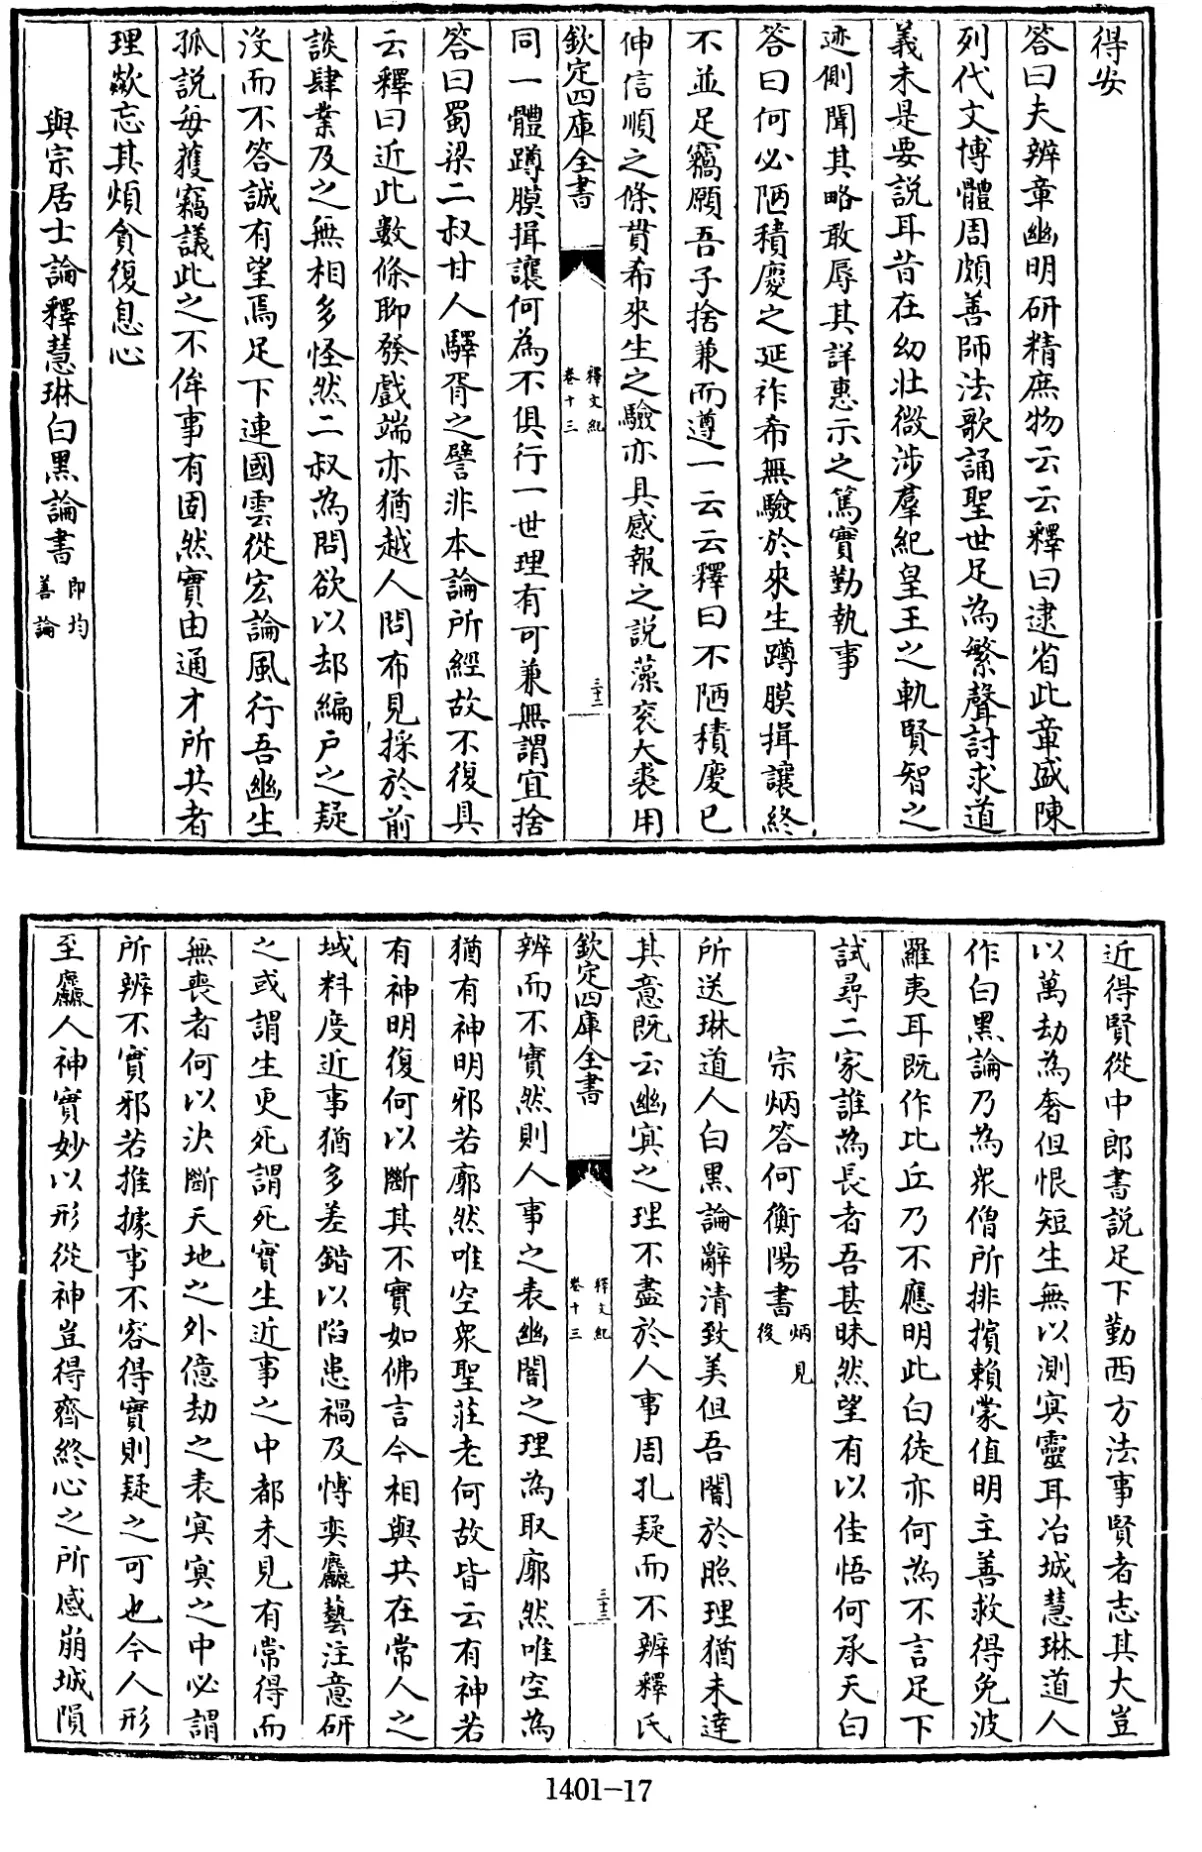 得安
答曰夫辨章幽明研精庶物云云釋曰逮省此章盛陳
列代文博體周頗善師法歌誦聖世足為繁聲討求道
義未是要説耳昔在幼壯微涉羣紀皇王之軌賢智之
迹側聞其略敢辱其詳惠示之篤實勤執事
答曰何必陋積慶之延祚希無驗於來生蹲膜揖讓終
不並足竊願吾子捨兼而遵一云云釋曰不陋積慶已
伸信順之條貫希來生之驗亦具感報之説藻衮大裘用
欽定四庫全書
釋文紀
卷十三
三十二
同一體蹲膜揖讓何為不俱行一世理有可兼無謂宜捨
答曰蜀梁二叔甘人驛胥之譬非本論所經故不復具
云釋曰近此數條聊發戲端亦猶越人問布見採於前
談肆業及之無相多怪然二叔為問欲以却編户之疑
沒而不答誠有望焉足下連國雲從宏論風行吾幽生
孤説每獲竊議此之不侔事有固然實由通才所共者
理歘忘其煩貪復息心
與宗居士論釋慧琳白黑論書
即均
善論
近得賢從中郎書説足下勤西方法事賢者志其大豈
以萬劫為奢但恨短生無以測冥靈耳冶城慧琳道人
作白黑論乃為衆僧所排擯賴蒙值明主善救得免波
羅夷耳既作比丘乃不應明此白徒亦何為不言足下
試尋二家誰為長者吾甚昧然望有以佳悟何承天白
宗炳答何衡陽書
炳見
後
所送琳道人白黑論辭清致美但吾闇於照理猶未達
其意既云幽冥之理不盡於人事周孔疑而不辨釋氏
欽定四庫全書
釋文紀
卷十三
三十三
辨而不實然則人事之表幽闇之理為取廓然唯空為
猶有神明邪若廓然唯空衆聖莊老何故皆云有神若
有神明復何以斷其不實如佛言今相與共在常人之
域料度近事猶多差錯以陷患禍及愽奕麤藝注意研
之或謂生更死謂死實生近事之中都未見有常得而
無喪者何以決斷天地之外億劫之表冥冥之中必謂
所辨不實邪若推據事不容得實則疑之可也今人形
至麤人神實妙以形從神豈得齊終心之所感崩城隕
1401-17